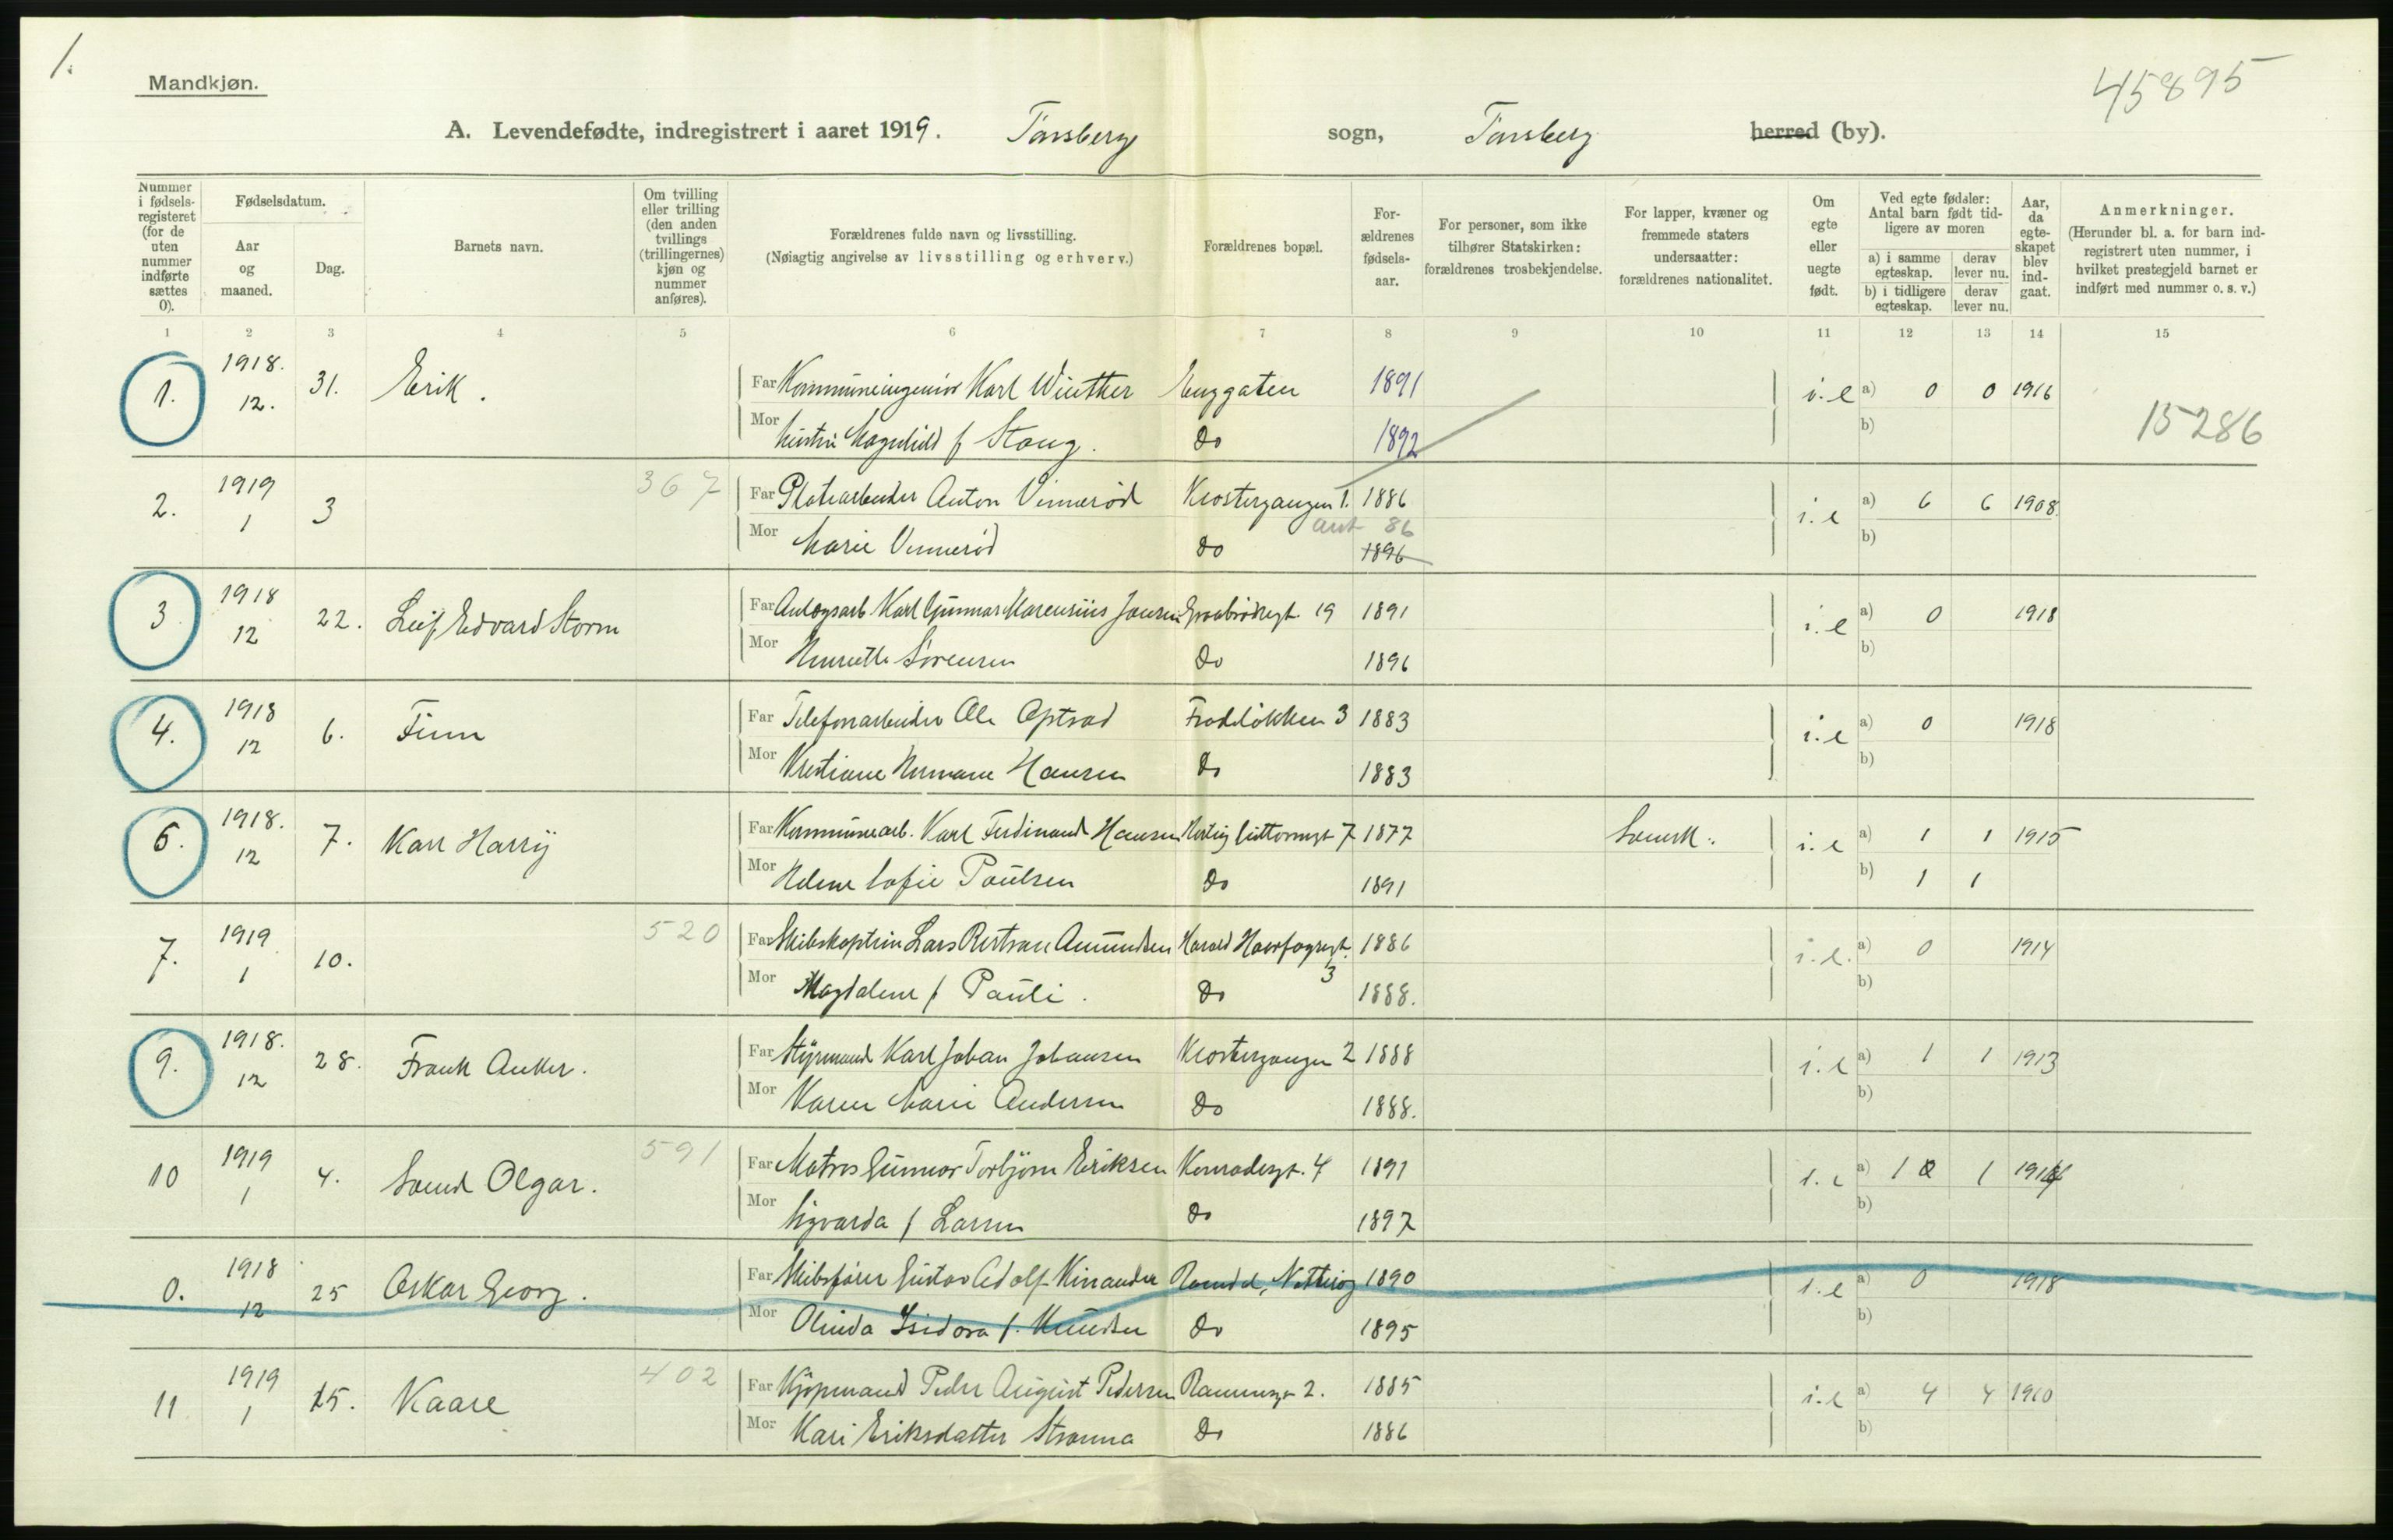 1.
Mandkjøn.
45895
A. Levendefødte, indregistrert i aaret 1919. Tønsberg sogn, Tønsberg herred (by).
Nummer i fødselsregisteret (for de uten nummer indførte sættes 0).
Fødselsdatum.
Aar og maaned.
Dag.
Barnets navn.
Om tvilling eller trilling (den anden tvillings (trillingernes) kjøn og nummer anføres).
Forældrenes fulde navn og livsstilling.
(Nøiagtig angivelse av livsstilling og erhverv.)
Forældrenes bopæl.
Forældrenes fødselsaar.
For personer, som ikke tilhører Statskirken: forældrenes trosbekjendelse.
For lapper, kvæner og fremmede staters undersaatter: forældrenes nationalitet.
Om egte eller uegte født.
Ved egte fødsler: Antal barn født tidligere av moren
a) i samme egteskap. derav lever nu.
b) i tidligere egteskap. derav lever nu.
Aar, da egteskapet blev indgaat.
Anmerkninger.
(Herunder bl. a. for barn indregistrert uten nummer, i hvilket prestegjeld barnet er indført med nummer o. s. v.)
1 2 3 4 5 6 7 8 9 10 11 12 13 14 15
1. 1918. 12. 31. Erik. Far Kommuneingeniør Karl Winther Enggaten 1891 i.e a) 0 0 1916
Mor hustru Magnhild f Stang. do 1892 b) 15286
2. 1919 1 3 367 Far Platearbeider Anton Vinnerød Klostergangen 1. 1886 i.e a) 6 6 1908.
ant 86
Mor Marie Vinnerød do 1896 b)
3 1918 12 22. Leif Edvard Storm Far Anlegsarb. Karl Gunnar Marensius Jansen Graabrødregt. 19 1891 i.e a) 0 1918
Mor Henriette Sørensen do 1896 b)
4. 1918 12 6. Finn Far Telefonarbeider Ole Optrad Frodeløkken 3 1883 i.e a) 0 1918
Mor Kristiane Hermane Hansen do 1883 b)
6. 1918. 12 7. Karl Harry Far Kommunearb. Karl Ferdinand Hansen Hertug Guttormsgt 7 1877 Svensk. i.e a) 1 1 1915
Mor Helene Sofie Paulsen do 1891 b) 1 1
7. 1919 1 10. 520 Far Skibskaptein Lars Bertran Amundsen Harald Haarfagresgt. 3 1886 i.e. a) 0 1914
Mor Magdalene f Pauli. do 1888. b)
9. 1918. 12 28. Frank Anker. Far Styrmand Karl Johan Johansen Klostergangen 2 1888 i.e a) 1 1 1913
Mor Karen Marie Andersen do 1888. b)
10 1919 1 4. Svend Olgar. 591 Far Matros Gunnar Torbjørn Eriksen Konradesgt. 4 1891 i.e a) 1 0 1 1916
Mor Sigvarda f Larsen do 1897 b)
0. 1918 12 25 Oskar Georg. Far Skibsfører Gustav Adolf Kinander Ramdal, Nøtterø 1890 i.e a) 0 1918
Mor Olinda Isidora f. Knudsen do 1895 b)
11 1919 1 15. Kaare 402 Far Kjøpmand Peder August Pedersen Rammegt 2. 1885 i.e a) 4 4 1910
Mor Kari Eriksdatter Stranna do 1886 b)